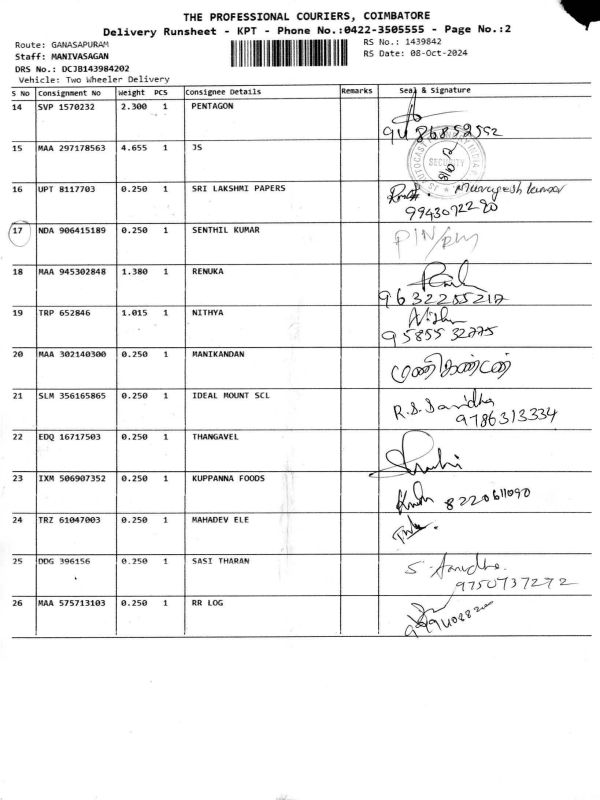 THE PROFESSIONAL COURIERS, COIMBATORE
Delivery Runsheet - KPT - Phone No.:0422-3505555 - Page No.:2
Route: GANASAPURAM
RS No.: 1439842
Staff: MANIVASAGAN
RS Date: 08-Oct-2024
DRS No.: DCJB143984202
Vehicle: Two Wheeler Delivery
S No Consignment No Weight PCS Consignee Details Remarks Seal & Signature
14 SVP 1570232 2.300 1 PENTAGON
9486852552
15 MAA 297178563 4.655 1 JS
SECURITY
16 UPT 8117703 0.250 1 SRI LAKSHMI PAPERS Murugesh kumar
9943072290
17 NDA 906415189 0.250 1 SENTHIL KUMAR
18 MAA 945302848 1.380 1 RENUKA
9632255217
19 TRP 652846 1.015 1 NITHYA
9585532775
20 MAA 302140300 0.250 1 MANIKANDAN மணிகண்டன்
21 SLM 356165865 0.250 1 IDEAL MOUNT SCL
9786313334
22 EDQ 16717503 0.250 1 THANGAVEL
23 IXM 506907352 0.250 1 KUPPANNA FOODS 8220611090
24 TRZ 61047003 0.250 1 MAHADEV ELE
25 DDG 396156 0.250 1 SASI THARAN
9750737272
26 MAA 575713103 0.250 1 RR LOG